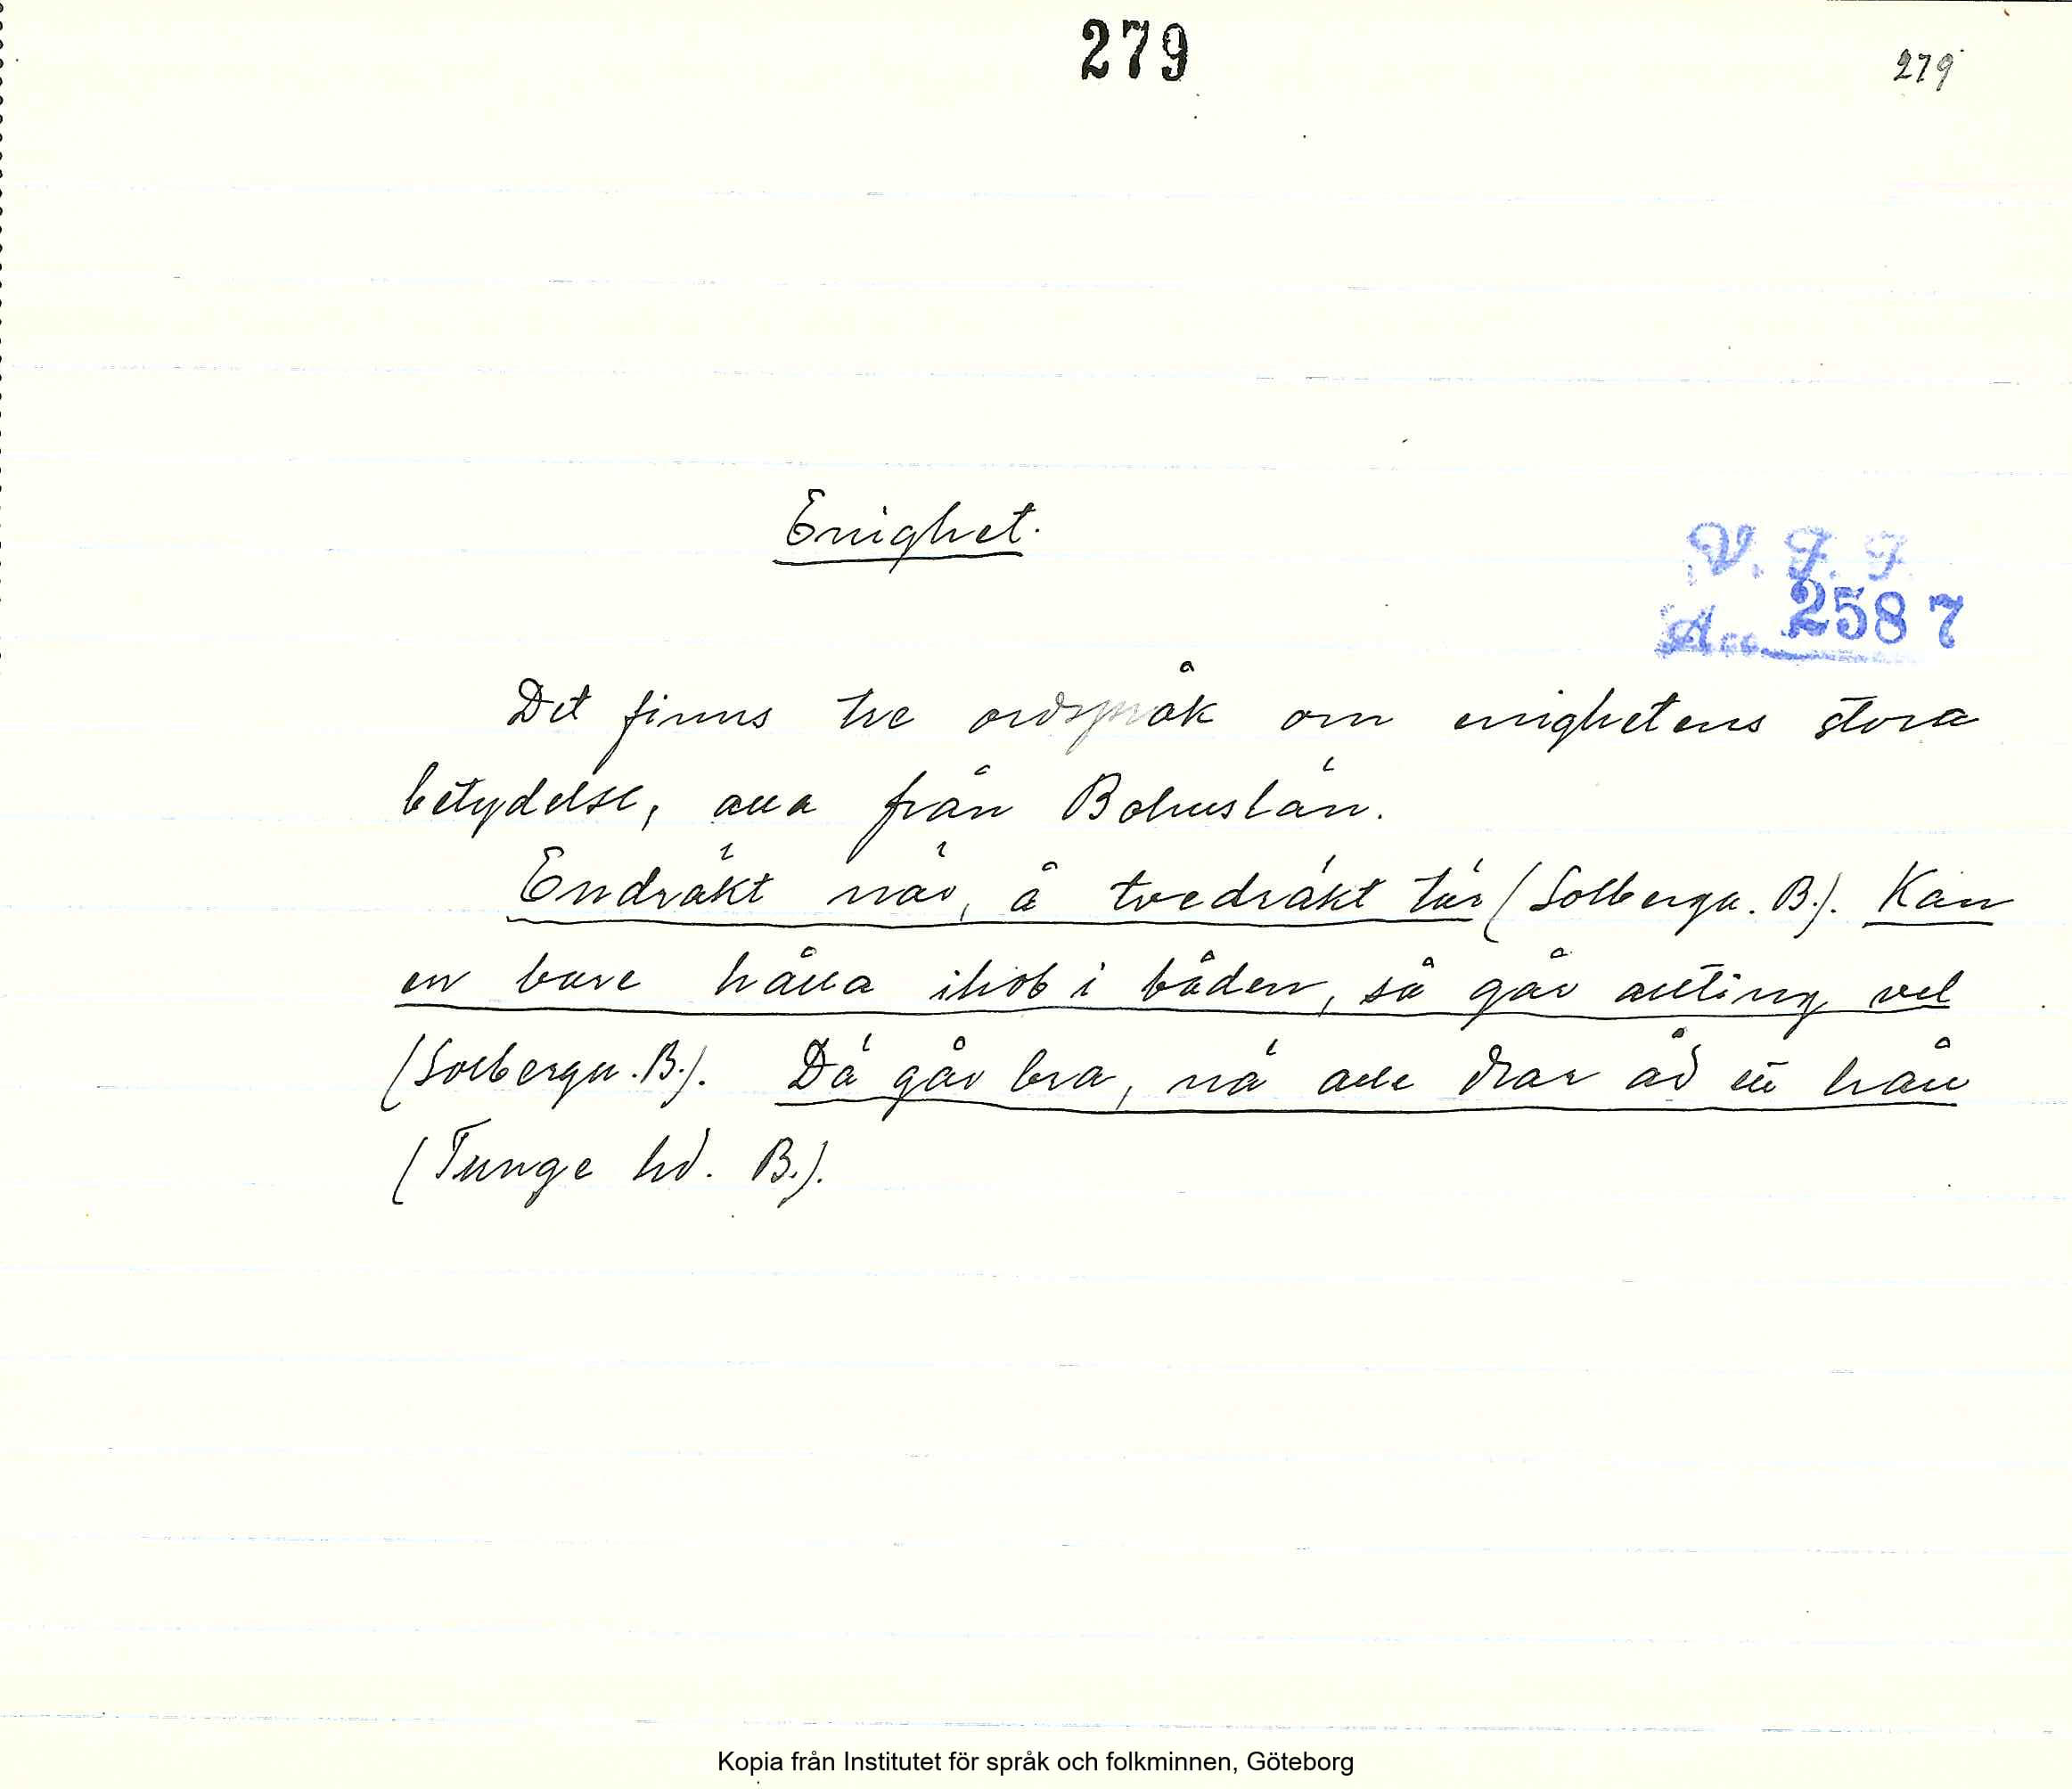 279
279
Enighet.
V. F. F.
Acc. 2587
Det finns tre ordspråk om enighetens stora
betydelse, alla från Bohuslän.
Endräkt när, å tvedräkt tär (Solberga. B.). Kan
en bare hålla ihob i båden, så går allting vel
(Solberga. B.). Dä går bra, nä alle drar åd ett håll
(Tunge hd. B.).
Kopia från Institutet för språk och folkminnen, Göteborg